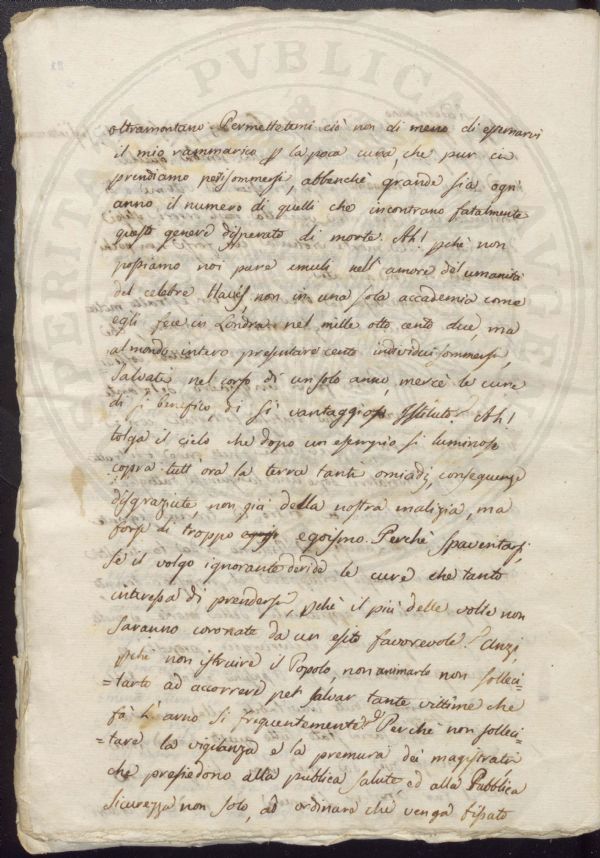 oltramontano. Permettetemi ciò non di meno di esternarvi
il mio rammarico p la poca cura, che pur ci
prendiamo pei sommersi, abbenchè grande sia ogni
anno il numero di quelli che incontrano fatalmente
questo genere disperato di morte. Ah! pchè non
possiamo noi pure emuli nell'amore del'umanità
del celebre Haves, non in una sola accademia come
egli fece in Londra nel mille otto cento due, ma
al mondo intero presentare cento individui sommersi,
salvati nel corso di un solo anno, mercè le cure
di sì benefico, di sì vantaggioso Istituto? Ah!
tolga il cielo che dopo un esempio sì luminoso
copra tutt'ora la terra tanti omicidj conseguenze
disgraziate, non già della nostra malizia, ma
forse di troppo egoismo. Perchè spaventarsi,
se il volgo ignorante deride le cure che tanto
interessa di prendersi, pchè il più delle volte non
saranno coronate da un esito favorevole? Anzi,
pchè non istruire il Popolo, non animarlo non solleci=
=tarlo ad accorrere per salvar tante vittime che
fà l'Arno sì frequentemente? Perchè non solleci=
=tare la vigilanza e la premura dei magistrati
che presiedono alla publica salute, ed alla Pubblica
sicurezza non solo, ad ordinare che venga